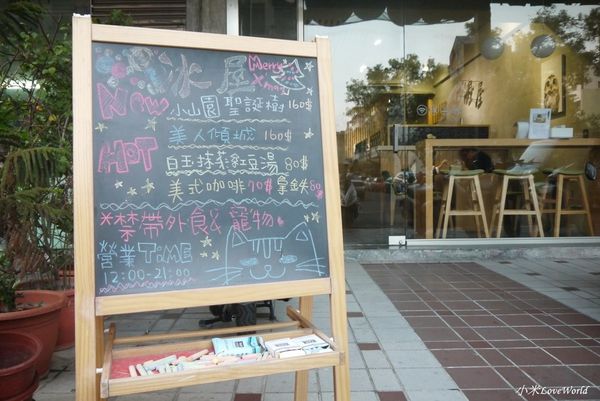 冰屋 Merry X'mas
New 小山園聖誕樹 160$
美人傾城 160$
HOT 白玉抹茶紅豆湯 80$
美式咖啡70$拿鉄80
*禁帶外食&寵物*
營業TiME
12:00-21:00
小米LoveWorld